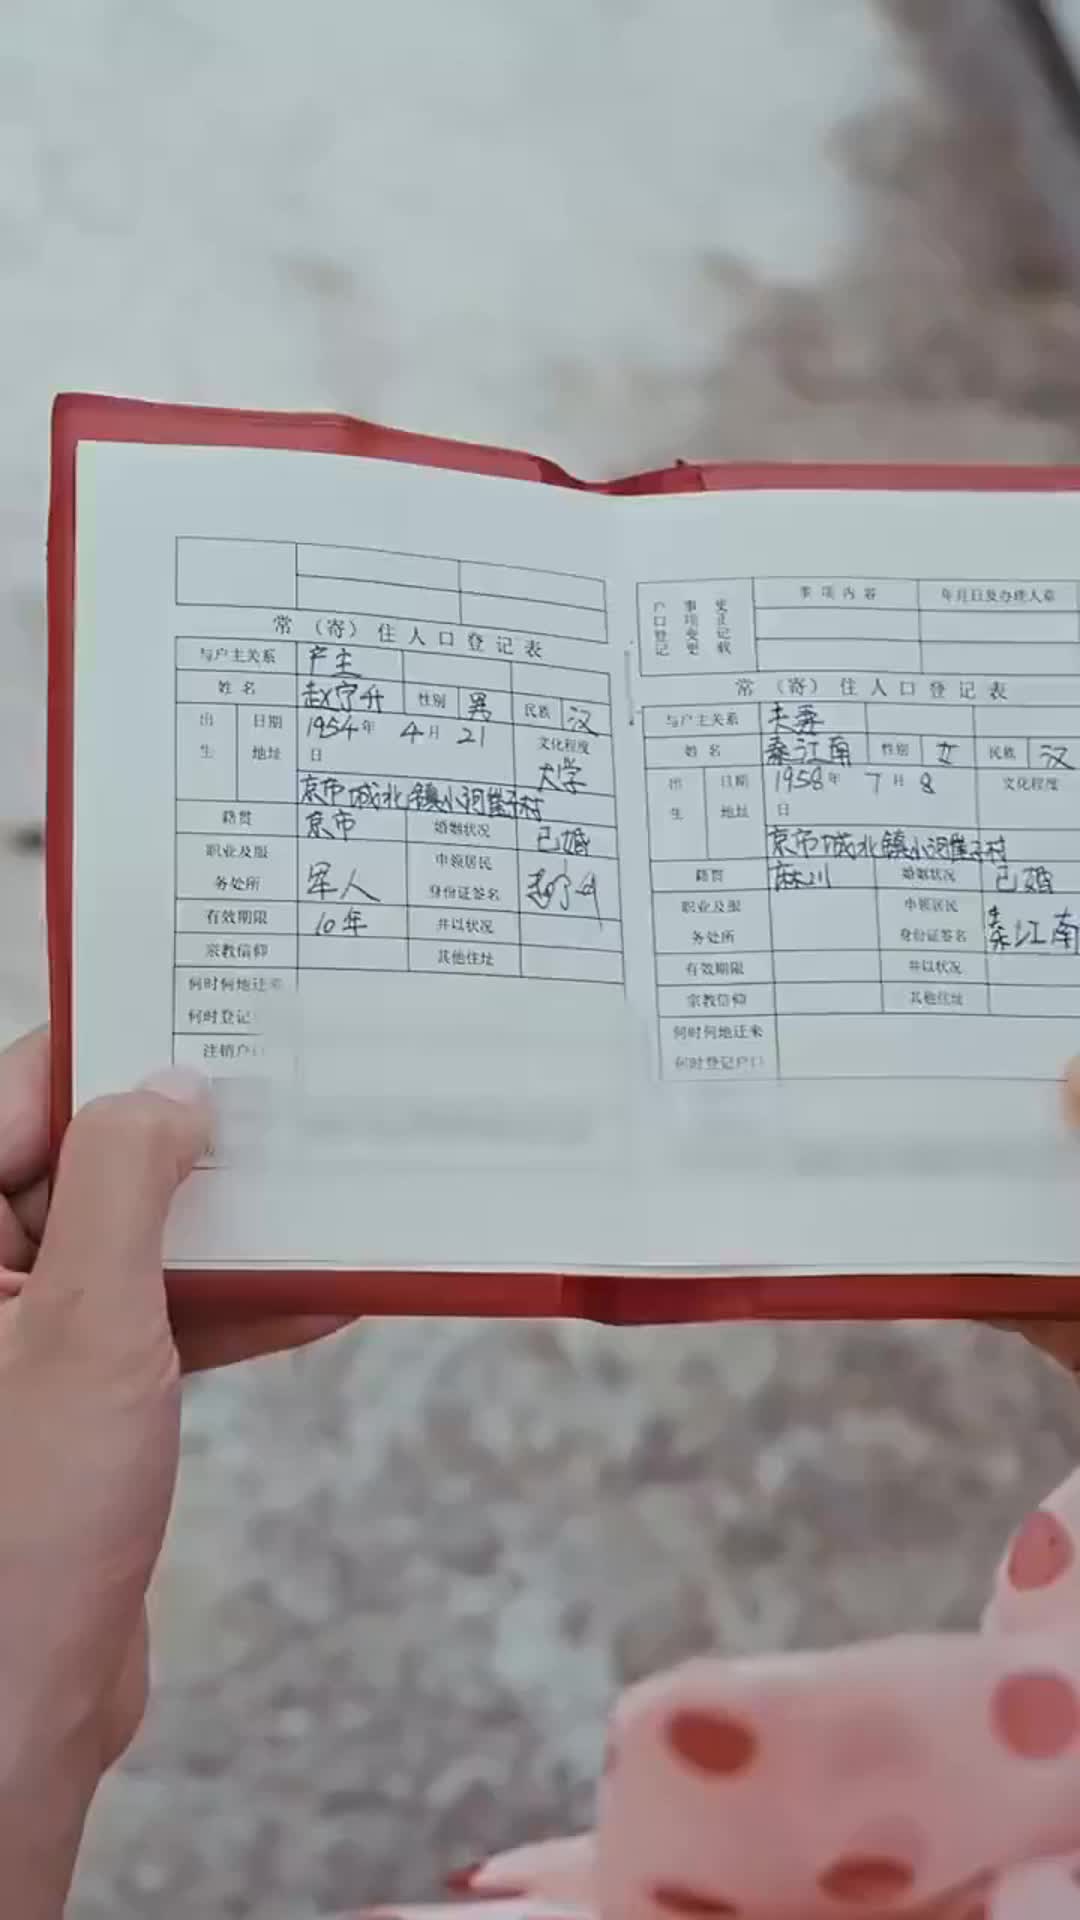 常（寄）住人口登记表
与户主关系 户主
姓名 赵宁升 性别 男 民族 汉
出生 日期 1954年 4月 21日 文化程度 大学
地址 京市城北镇小河崖子村
籍贯 京市 婚姻状况 已婚
职业及服务处所 军人 申领居民身份证签名
有效期限 10年 井以状况
宗教信仰 其他住址
何时何地迁来
何时登记
注销户口
户口登记事项变更更正记载 事项内容 年月日及办理人章
常（寄）住人口登记表
与户主关系 夫妻
姓名 秦江南 性别 女 民族 汉
出生 日期 1958年 7月 8日 文化程度
地址 京市城北镇小河崖子村
籍贯 麻川 婚姻状况 已婚
职业及服务处所 申领居民身份证签名 秦江南
有效期限 井以状况
宗教信仰 其他住址
何时何地迁来
何时登记户口